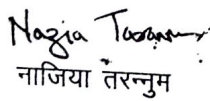 Nazia Tarannum
नाजिया तरन्नुम